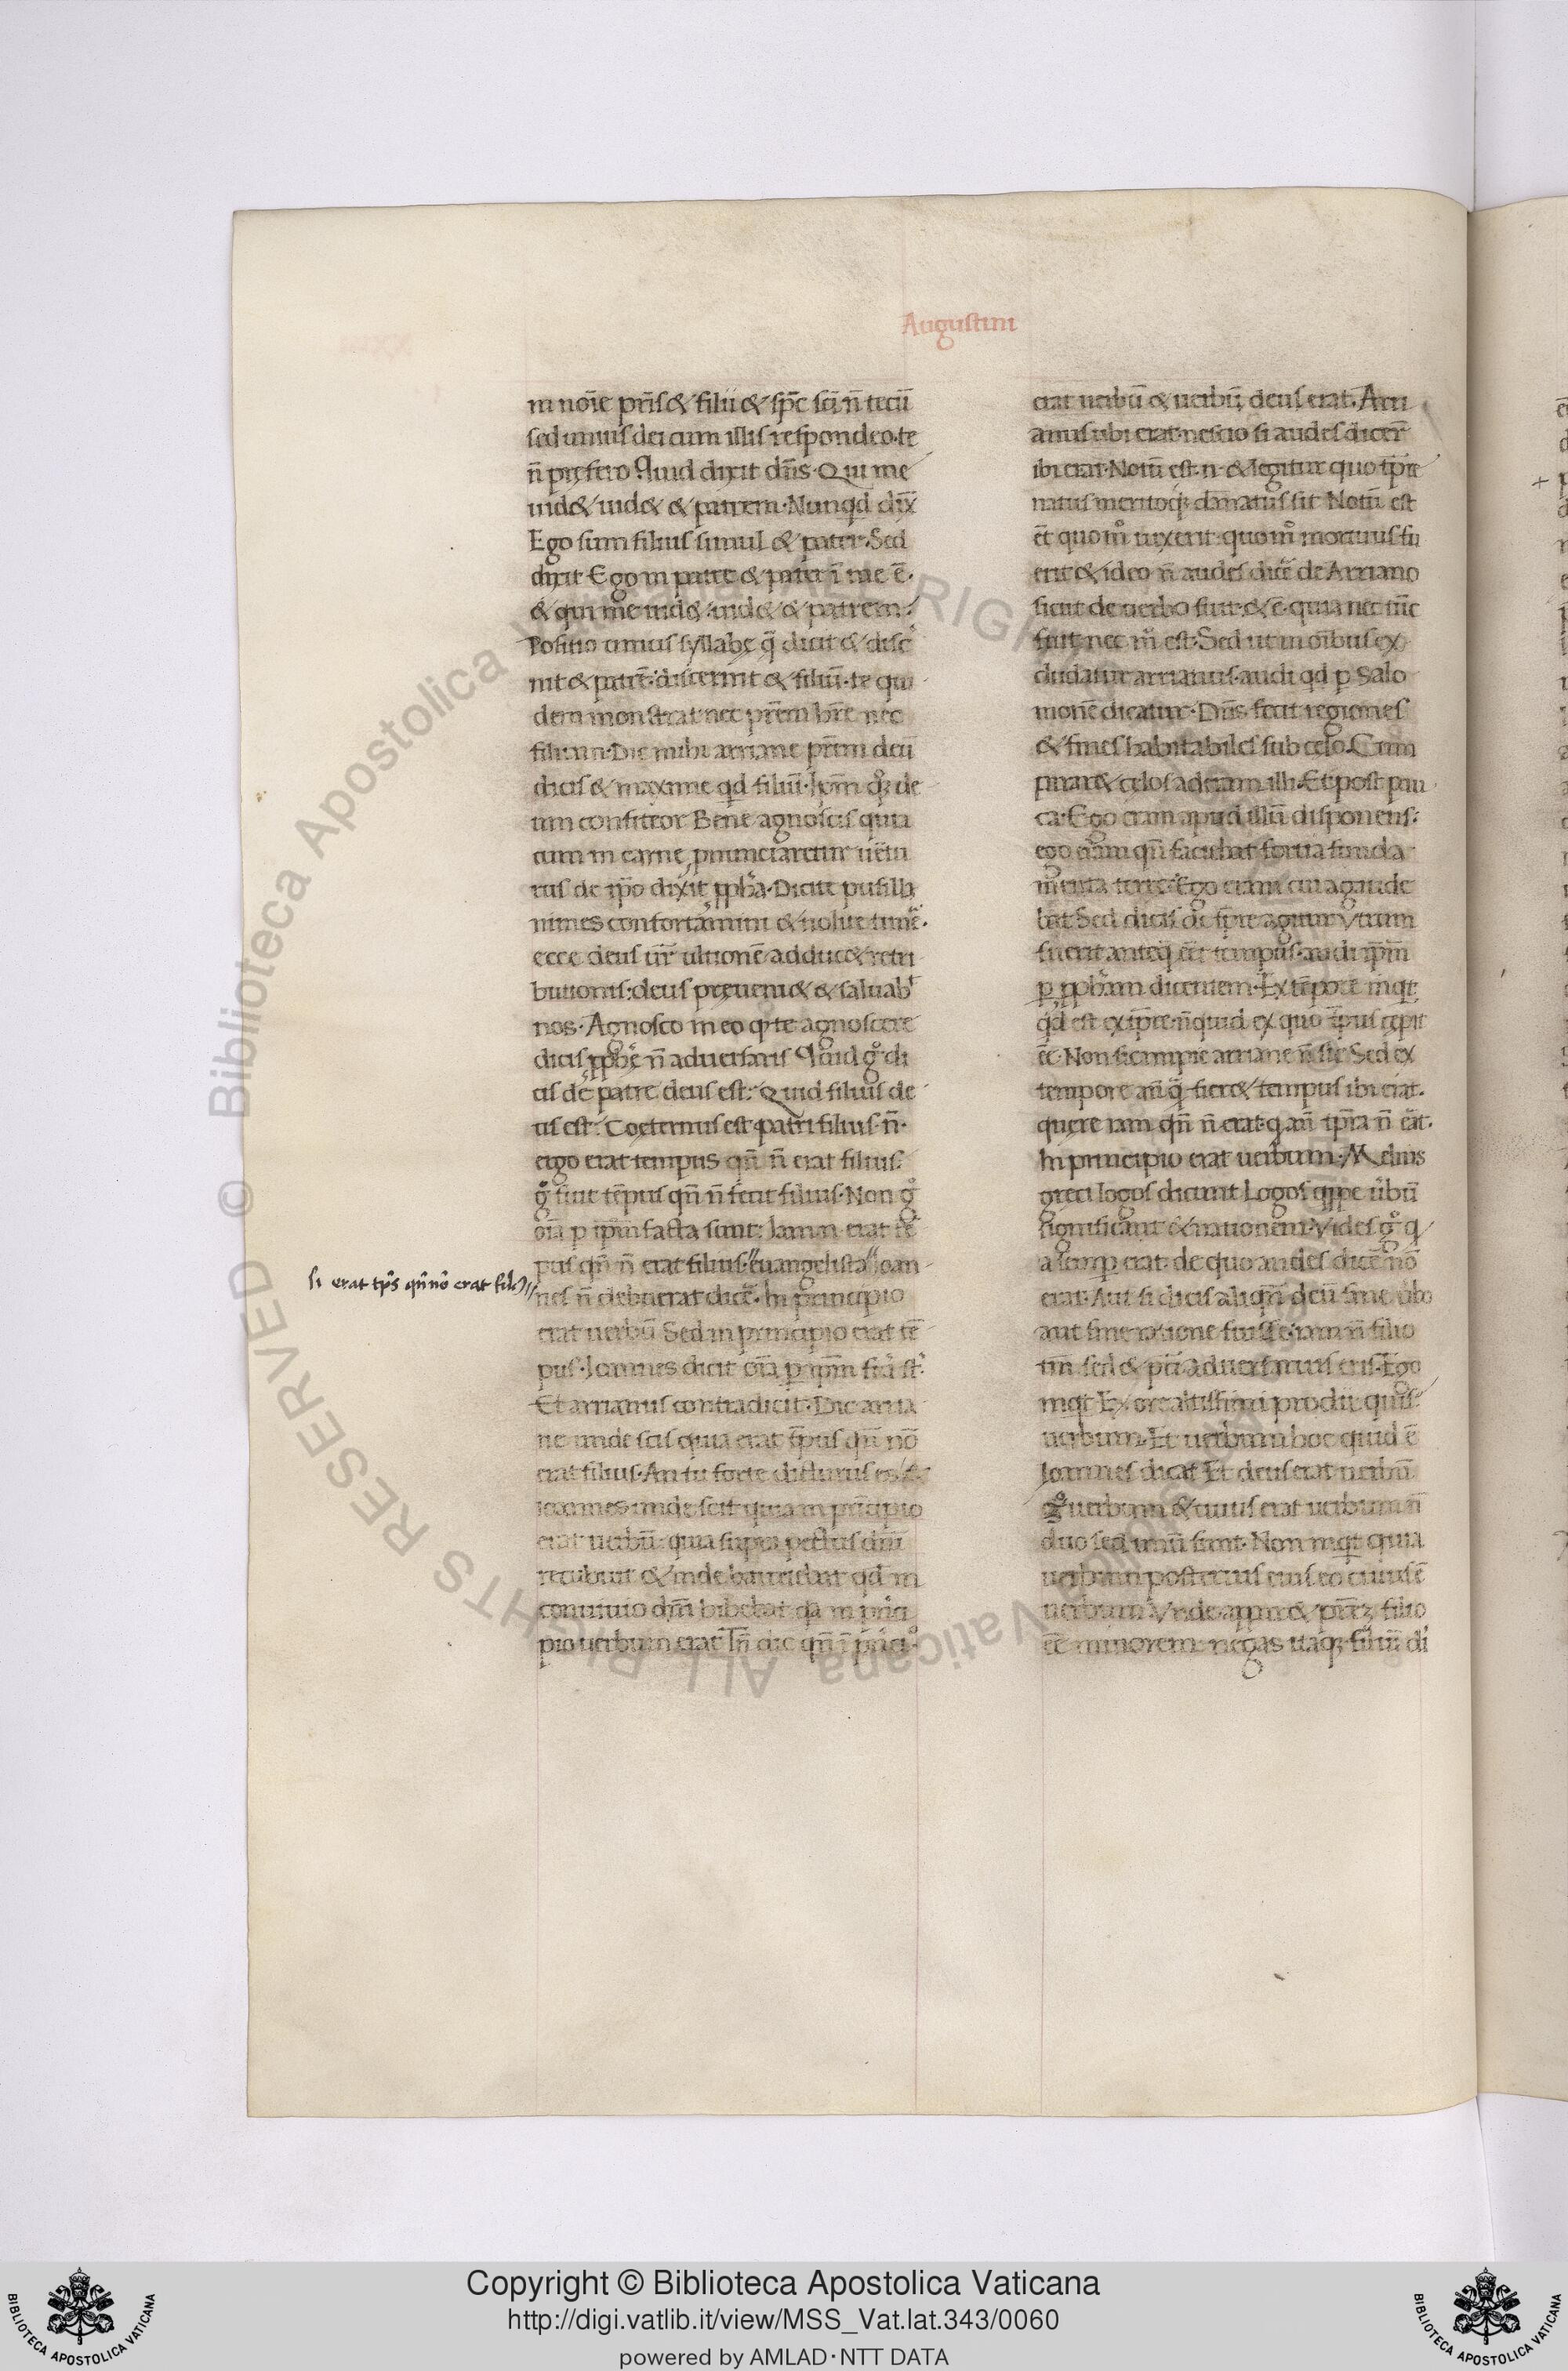 Augustini
in noīe pr̄is & filii & sp̄c sc̄i n̄ tecū
sed unius dei cum illis respondeo. te
n̄ pręfero. Quid dixit dn̄s. Qui me
uid& uid& & patrem. Nunqd dix̄
Ego sum filius simul & pater. Sed
dixit Ego in patre & pater ī me ē.
& qui me uid& uid& & patrem.
Positio unius syllabę q̄ dicit &
nit & patrē. discernit & filiū. te qui
dem monstrat nec pr̄em h̄re nec
filium. Dic mihi arriane pr̄em deū
dicis & maxime qd filiū. de
um confiteor Bene agnoscis quia
cum in carne pnunciaretur uētu
rus de ipō dixit pph̄a. Dicite pusilla
nimes confortamini & nolite timē.
ecce deus ur̄ ultionē adduc& retri
butionis: deus pręueni& & saluab
nos. Agnosco in eo q te agnoscere
dicis n̄ aduersaris Quid g di
cis de patre deus est: Quid filius de
us est. Coeternus est patri filius. n̄.
ergo erat tempus qn̄ n̄ erat filius.
g fuit tēpus qn̄ n̄ fecit filius. Non g
oīa p ipm̄ facta sunt. Iam n erat tē
pus qn̄ n̄ erat filius. "euangelista" Ioan
si erat tp̄s qn̄ nō erat fili9//
nes n̄ debuerat dicē. In principio
erat uerbū Sed in principio erat tē
pus. Ioannes dicit oīa p ipm̄
Et arrianus contradicit. Dic arria
ne unde scis quia erat tp̄us qn̄ nō
erat filius. An tu forte dicturus es
ioannes unde scit quia in principio
erat uerbū. quia supra pectus dn̄i
recubuit & inde hauriebat qd in
conuiuio dn̄i bibebat qa in prīci
pio uerbum erat In̄ dic qn̄ ī prīci
erat uerbū & uerbū deus erat. Arri
anus ubi erat. nescio si audes dicer̄
ibi erat. Notū est. n. & legitur quo tp̄re
natus meritoq; dānatus sit Notū est
ēt quom uixerit. quom mortuus fu
erit & ideo n̄ audes dicē de Arriano
sicut de uerbo fuit & ē. quia nec tūc
fuit nec m est. Sed ut in oībus ex
cludatur arrianus. audi qd p Salo
monē dicatur. Dn̄s fecit regiones
& fines habitabiles sub celo. Cum
parar& celos aderam illi. Et post pau
ca. Ego eram apud illū disponens:
ego eram qn̄ faciebat fortia funda
menta terre. Ego eram cui agaude
bat Sed dicis de tp̄re agitur Vtrum
fuerit anteq̄ eēt tempus. audi ipm̄
p pph̄am dicentem. Ex tēpore inqt
qd est ex tp̄re. nquid ex quo tp̄us cepit
eē. Non sic impie arriane n̄ sic. Sed ex
tempore an̄ q̄ fier& tempus ibi erat.
quere iam qn̄ n̄ erat. q an̄ tp̄ra n̄ erat.
In principio erat uerbum. Melius
greci logos dicunt Logos qppe ūbū
significat & rationem. Vides g q
a semp erat. de quo audes dicē nō
erat. Aut si dicis aliqn̄ deū sine ūbo
aut sine ratione fuisse. iam n̄ filio
tm̄ sed & pr̄i aduersarius eris. Ego
inqt Ex ore altissimi prodii. quis
uerbum. Et uerbum hoc quid ē
Ioannes dicat Et deus erat uerbū
g uerbum & cuius erat uerbum n̄
duo sed unū sunt. Non inqt quia
uerbum posterius eius eo cuius ē
uerbum Vnde appar& pr̄e filio
eē minorem. negas itaq; filiū di
Copyright © Biblioteca Apostolica Vaticana
http://digi.vatlib.it/view/MSS_Vat.lat.343/0060
powered by AMLAD·NTT DATA
© Biblioteca Apostolica Vaticana ALL RIGHTS RESERVED
BIBLIOTECA APOSTOLICA VATICANA
BIBLIOTECA APOSTOLICA VATICANA